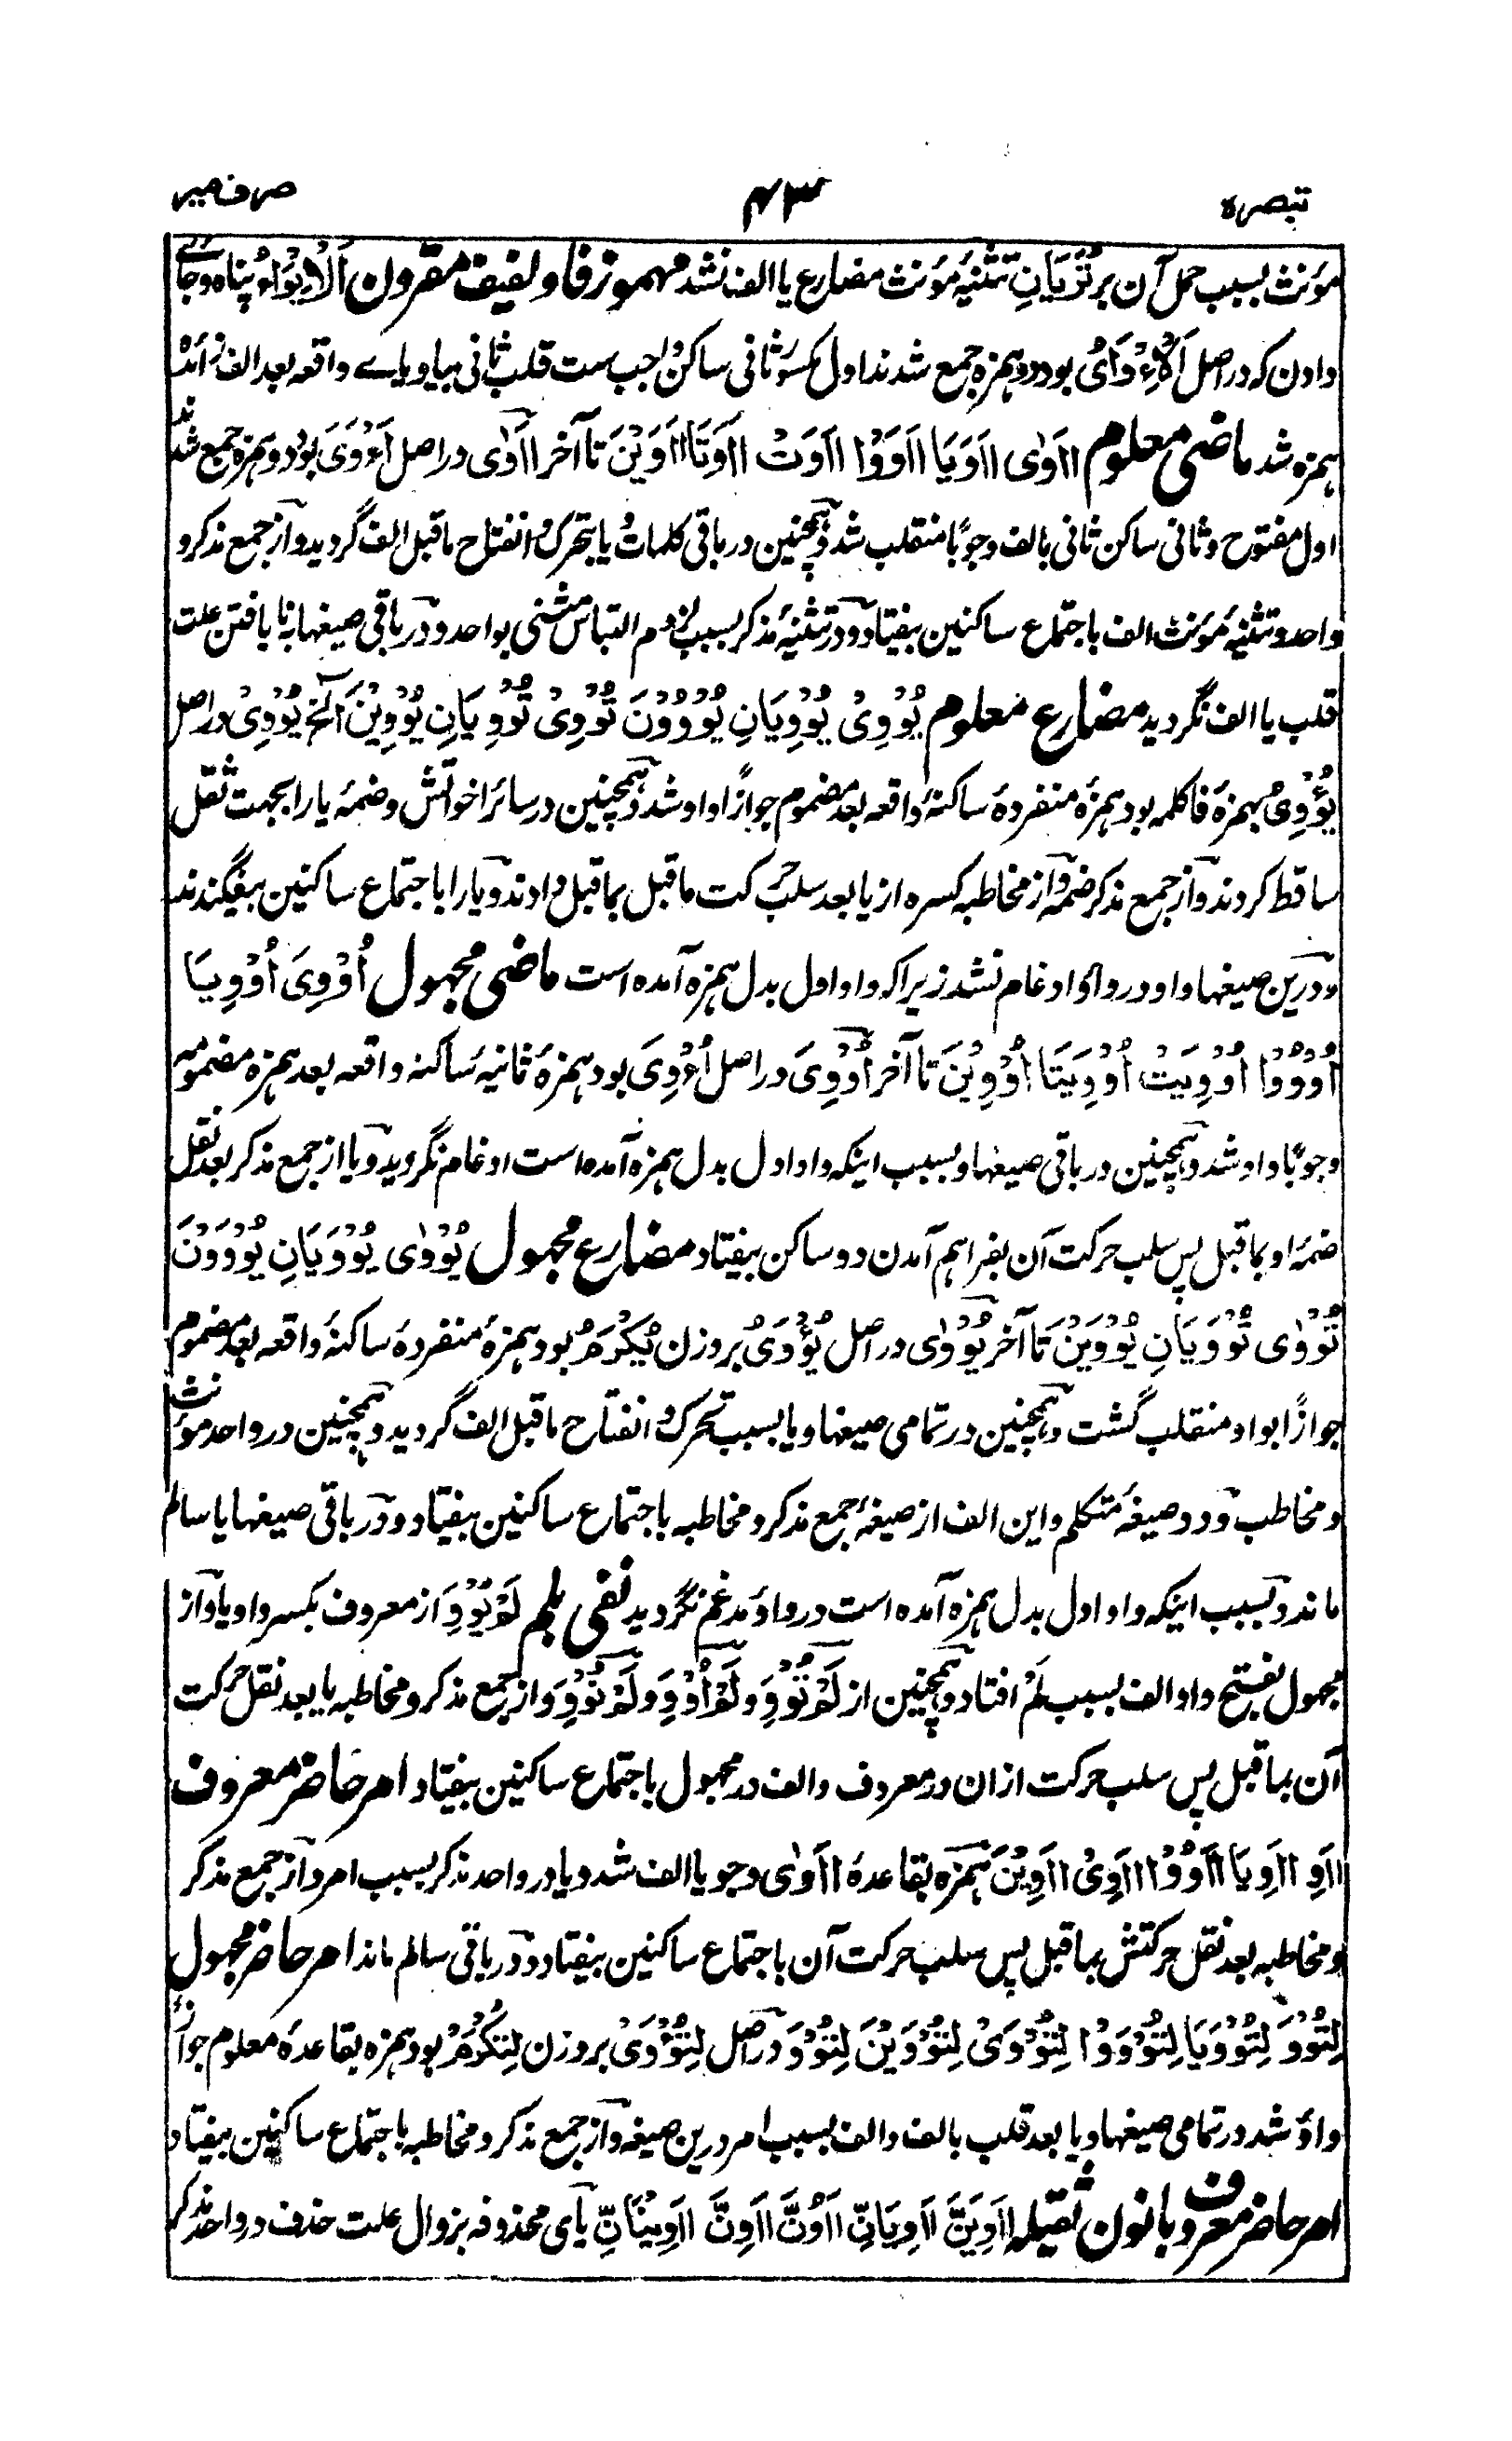 تبصره ۴۳ صرف میر
مؤنث بسبب حمل آن بر تُرَیَانِ تثنیۂ مؤنث مضارع یا الف نشد مهموز فا و لفیف مقرون اَلْاِیْوَاءُ پناه و جائے
دادن که در اصل اَلْاِءْوَایُ بود دو همزه جمع شدند اول مکسور ثانی ساکن واجب ست قلب ثانی بیا و یاے واقعه بعد الف زائد
همزه شد ماضی معلوم ااَوٰی ااَوَیَا ااَوَوْا ااَوَتْ ااَوَتَا ااَوَیْنَ تا آخر ااَوٰی در اصل اَءْوَیَ بود دو همزه جمع شدند
اول مفتوح و ثانی ساکن ثانی بالف وجوبًا منقلب شد و همچنین در باقی کلمات و یا بتحرک و انفتاح ماقبل الف گردید و از جمع مذکر و
واحد و تثنیۂ مؤنث الف باجتماع ساکنین بیفتاد و در تثنیۂ مذکر بسبب لزوم التباس مثنی بواحد و در باقی صیغها بنا یافتن علت
قلب یا الف نگردید مضارع معلوم یُوْوِیْ یُوْوِیَانِ یُوْوُوْنَ تُوْوِیْ تُوْوِیَانِ یُوْوِیْنَ الخ یُوْوِیْ در اصل
یُؤْوِیُ بهمزۂ فا کلمه بود همزۂ منفردۂ ساکنۂ واقعه بعد مضموم جوازًا واو شد و همچنین در سائر اخواتش و ضمۂ یا را بجهت ثقل
ساقط کردند و از جمع مذکر ضمه و از مخاطبه کسره از یا بعد سلب حرکت ماقبل بماقبل دادند و یا را باجتماع ساکنین بیفگندند
و درین صیغها واو در واو ادغام نشد زیراکه واو اول بدل همزه آمده است ماضی مجهول اُوْوِیَ اُوْوِیَا
اُوْوُوْا اُوْوِیَتْ اُوْوِیَتَا اُوْوِیْنَ تا آخر اُوْوِیَ در اصل اُءْوِیَ بود همزۂ ثانیۂ ساکنه واقعه بعد همزه مضمومه
وجوبًا واو شد و همچنین در باقی صیغها و بسبب اینکه واو اول بدل همزه آمده است ادغام نگردید و یا از جمع مذکر بعد نقل
ضمۂ او بماقبل پس سلب حرکت آن بفراهم آمدن دو ساکن بیفتاد مضارع مجهول یُوْوٰی یُوْوَیَانِ یُوْوَوْنَ
تُوْوٰی تُوْوَیَانِ یُوْوَیْنَ تا آخر یُوْوٰی در اصل یُؤْوَیُ بروزن یُکْرَمُ بود همزۂ منفردۂ ساکنۂ واقعه بعد مضموم
جوازًا بواو منقلب گشت و همچنین در تمامی صیغها و یا بسبب تحرک و انفتاح ماقبل الف گردید و همچنین در واحد مؤنث
و مخاطب و در دو صیغۂ متکلم و این الف از صیغۂ جمع مذکر و مخاطبه باجتماع ساکنین بیفتاد و در باقی صیغها یا سالم
ماند و بسبب اینکه واو اول بدل همزه آمده است در واو مدغم نگردید نفی بلم لَمْ یُوْوِ از معروف بکسر واو یا و از
مجهول بفتح واو الف بسبب لَمْ افتاد و همچنین از لَمْ تُوْوِ و لَمْ اُوْوِ و لَمْ نُوْوِ و از جمع مذکر و مخاطبه یا بعد نقل حرکت
آن بماقبل پس سلب حرکت ازان در معروف والف در مجهول باجتماع ساکنین بیفتاد امر حاضر معروف
ااَوِ ااَوِیَا ااَوُوْا ااَوِیْ ااَوِیْنَ همزه بقاعدۂ ااَوٰی وجوبا الف شد و یا در واحد مذکر بسبب امر و از جمع مذکر
و مخاطبه بعد نقل حرکتش بماقبل پس سلب حرکت آن باجتماع ساکنین بیفتاد و در باقی سالم ماند امر حاضر مجهول
لِتُوْوَ لِتُوْوَیَا لِتُوْوَوْا لِتُوْوَیْ لِتُوْوَیْنَ لِتُوْوَ در اصل لِتُؤْوَیْ بروزن لِتُکْرَمْ بود همزه بقاعدۂ معلوم جوازًا
واو شد در تمامی صیغها و یا بعد قلب بالف والف بسبب امر درین صیغه و از جمع مذکر و مخاطبه باجتماع ساکنین بیفتاد
امر حاضر معروف بانون ثقیله ااَوِیَنَّ ااَوِیَانِّ ااَوُنَّ ااَوِنَّ ااَوِیْنَانِّ یاے محذوفه بزوال علت حذف در واحد مذکر